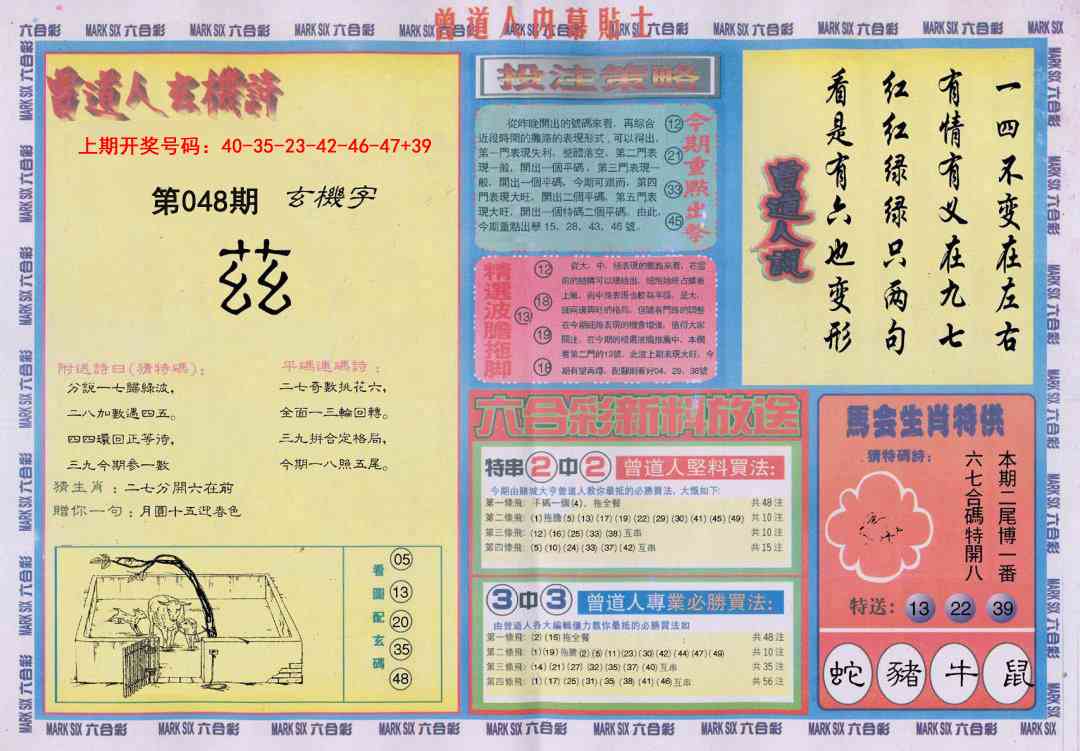 曾道人内幕貼士
六合彩 MARK SIX 六合彩 MARK SIX 六合彩 MARK SIX 六合彩 MARK SIX 六合彩 MARK SIX 六合彩 MARK SIX 六合彩 MARK SIX 六合彩 MARK SIX 六合彩 MARK SIX
曾道人玄機詩
上期开奖号码：40-35-23-42-46-47+39
第048期 玄機字
茲
附送詩曰(猜特碼)：
分説一七歸綠波，
二八加數遇四五。
四四環回正等待，
三九今期參一數
平碼連碼詩：
二七奇數挑花六，
全面一三輪回轉。
三九拼合定格局，
今期一八照五尾。
猜生肖：二七分開六在前
贈你一句：月圓十五迎春色
看圖配玄碼
05
13
20
35
48
投注策略
從昨晚開出的號碼來看，再綜合
近段時間的攤路的表現形式，可以得出，
第一門表現失利，整體落空，第二門表
現一般，開出一個平碼，第三門表現一
般，開出一個平碼，今期可跟而，第四
門表現大旺，開出二個平碼，第五門表
現大旺，開出一個特碼二個平碼，由此，
今期重點出擊15、28、43、46號。
今期重點出擊
12
21
33
45
精選波膽拖脚
12
18
13
19
18
看第二門的13號，此波上期表現大旺，今
期有望再爆，配腳則看好04、29、38號
六合彩新料放送
特串2中2 曾道人堅料買法:
今期由賭城大亨曾道人教你最抵的必勝買法，大概如下:
第一條飛: 平碼一個(4)，拖全餐 共48注
第二條飛: (1)拖膽(5)(13)(17)(19)(22)(29)(30)(41)(45)(49) 共10注
第三條飛: (12)(16)(25)(33)(38)互串 共10注
第四條飛: (5)(10)(24)(33)(37)(42)互串 共15注
3中3 曾道人專業必勝買法:
由曾道人各大編輯傾力教你最抵的必勝買法如
第一條飛: (2)(16)拖全餐 共48注
第二條飛: (1)(19)拖膽(2)(5)(11)(23)(30)(42)(44)(47)(49) 共10注
第三條飛: (14)(21)(27)(32)(35)(37)(40)互串 共35注
第四條飛: (1)(17)(25)(31)(35)(38)(41)(46)互串 共56注
一四不变在左右
有情有义在九七
红红绿绿只两句
看是有六也变形
曾道人說
馬会生肖特供
猜特碼詩:
本期二尾博一番
六七合碼特開八
特送: 13 22 39
蛇 豬 牛 鼠
MARK SIX 六合彩 MARK SIX 六合彩 MARK SIX 六合彩 MARK SIX 六合彩 MARK SIX 六合彩 MARK SIX 六合彩 MARK SIX 六合彩 MARK SIX 六合彩 MARK SIX